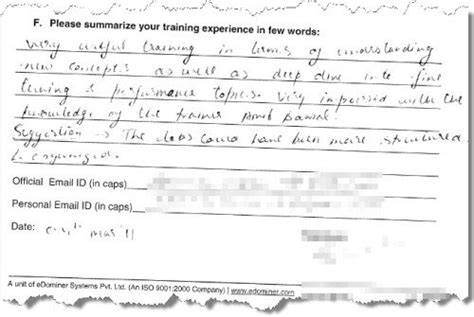 F. Please summarize your training experience in few words:
Very useful training in terms of understanding
new concepts as well as deep dive into fine
tuning & performance topics. Very impressed with the
knowledge of the trainer Amit Bansal.
Suggestion → The labs could have been more structured
& organized.
Official Email ID (in caps)
Personal Email ID (in caps)
Date: Mar 11
A unit of eDominer Systems Pvt. Ltd. (An ISO 9001:2000 Company) | www.edominer.com